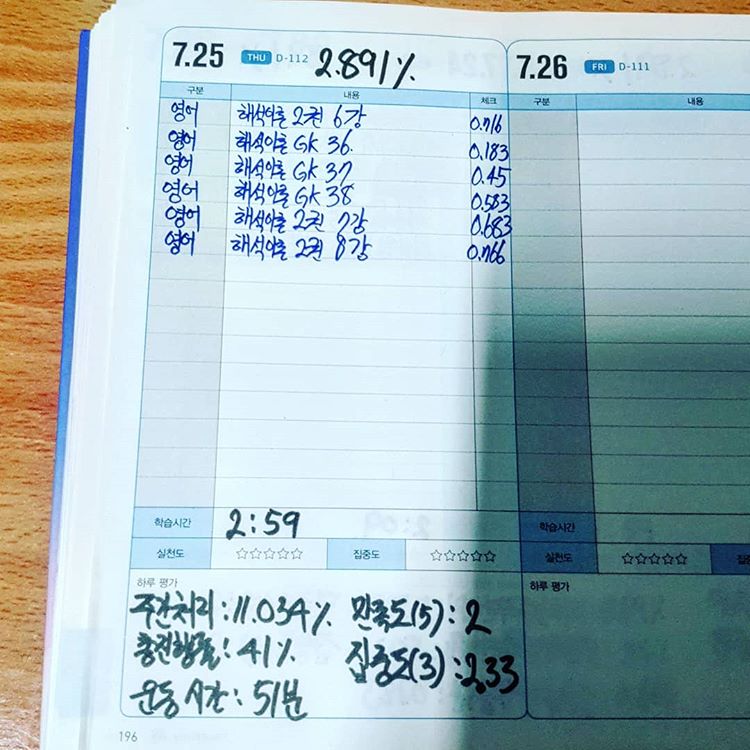 7.25 THU D-112 2.891%
구분 내용 체크
영어 해석이론 2권 6강 0.716
영어 해석이론 GK 36. 0.183
영어 해석이론 GK 37 0.45
영어 해석이론 GK 38 0.583
영어 해석이론 2권 7강 0.683
영어 해석이론 2권 8강 0.766
학습시간 2:59
실천도 ☆☆☆☆☆ 집중도 ☆☆☆☆☆
하루 평가
주간처리:11.034% 만족도(5):2
총진행률:41% 집중도(3):2.33
운동시간:51분
196
7.26 FRI D-111
구분 내용
학습시간
실천도 ☆☆☆☆☆
하루 평가